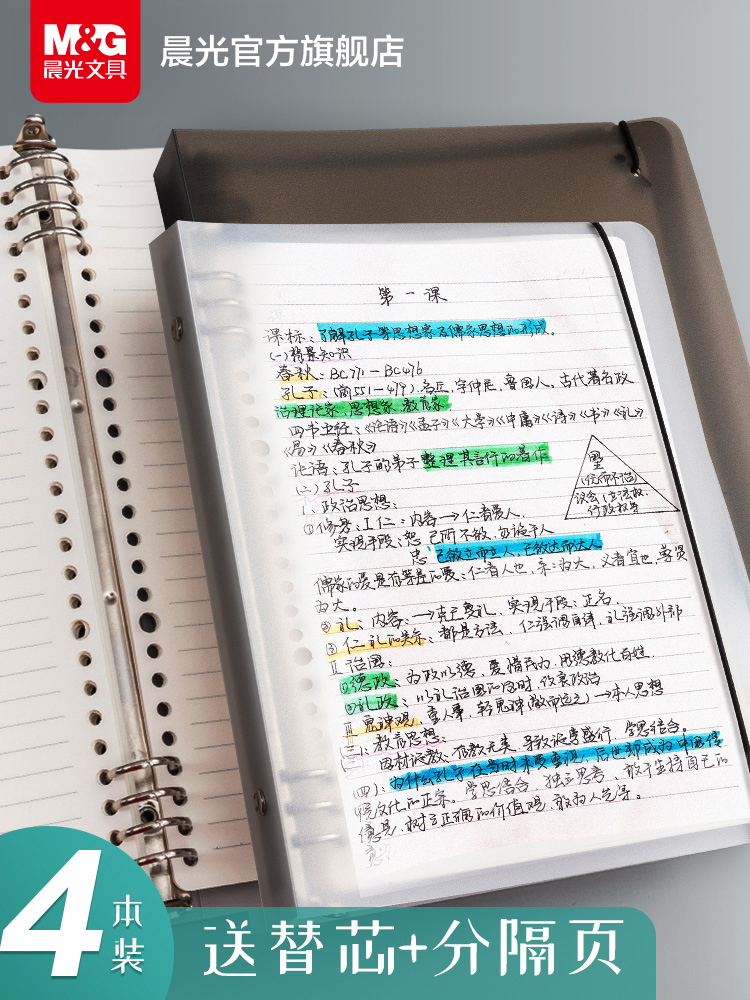 M&G
晨光文具
晨光官方旗舰店
第一课
课标：了解孔子等思想家及儒家思想的形成。
(一)背景知识
春秋：BC771-BC476
孔子：(前551-479)，名丘，字仲尼，鲁国人。古代著名政
治理论家，思想家，教育家
四书五经：《论语》《孟子》《大学》《中庸》《诗》《书》《礼》
《易》《春秋》
论语：孔子的弟子整理其言行的著作
(二)孔子
1、政治思想：
①修身：I 仁：内容→仁者爱人，
实现手段：恕 己所不欲，勿施于人
忠 己欲立而立人，己欲达而达人
儒家的爱是有等差的爱：仁者人也，亲亲为大，义者宜也，尊贤
为大。
②礼：内容：→克己复礼，实现手段：正名，
③仁礼的关系：都是方法，仁强调自律，礼强调外部
II 治国：
①德政：为政以德，爱惜民力，用德教化百姓
②礼政：以礼治国的同时，改良政治
III 鬼神观，重人事，轻鬼神(敬而远之)→本人思想
(三)、教育思想：
因材施教，有教无类，导致诚学盛行，学思结合。
(四)：为什么孔子在当时未受重视，后世却成为中国传
统文化的正宗。学思结合，独立思考，敢于坚持自己的
意见，树立正确的价值观，敢为人先等。
圣
议会(立法权，
行政权等
4
本
装
送替芯+分隔页